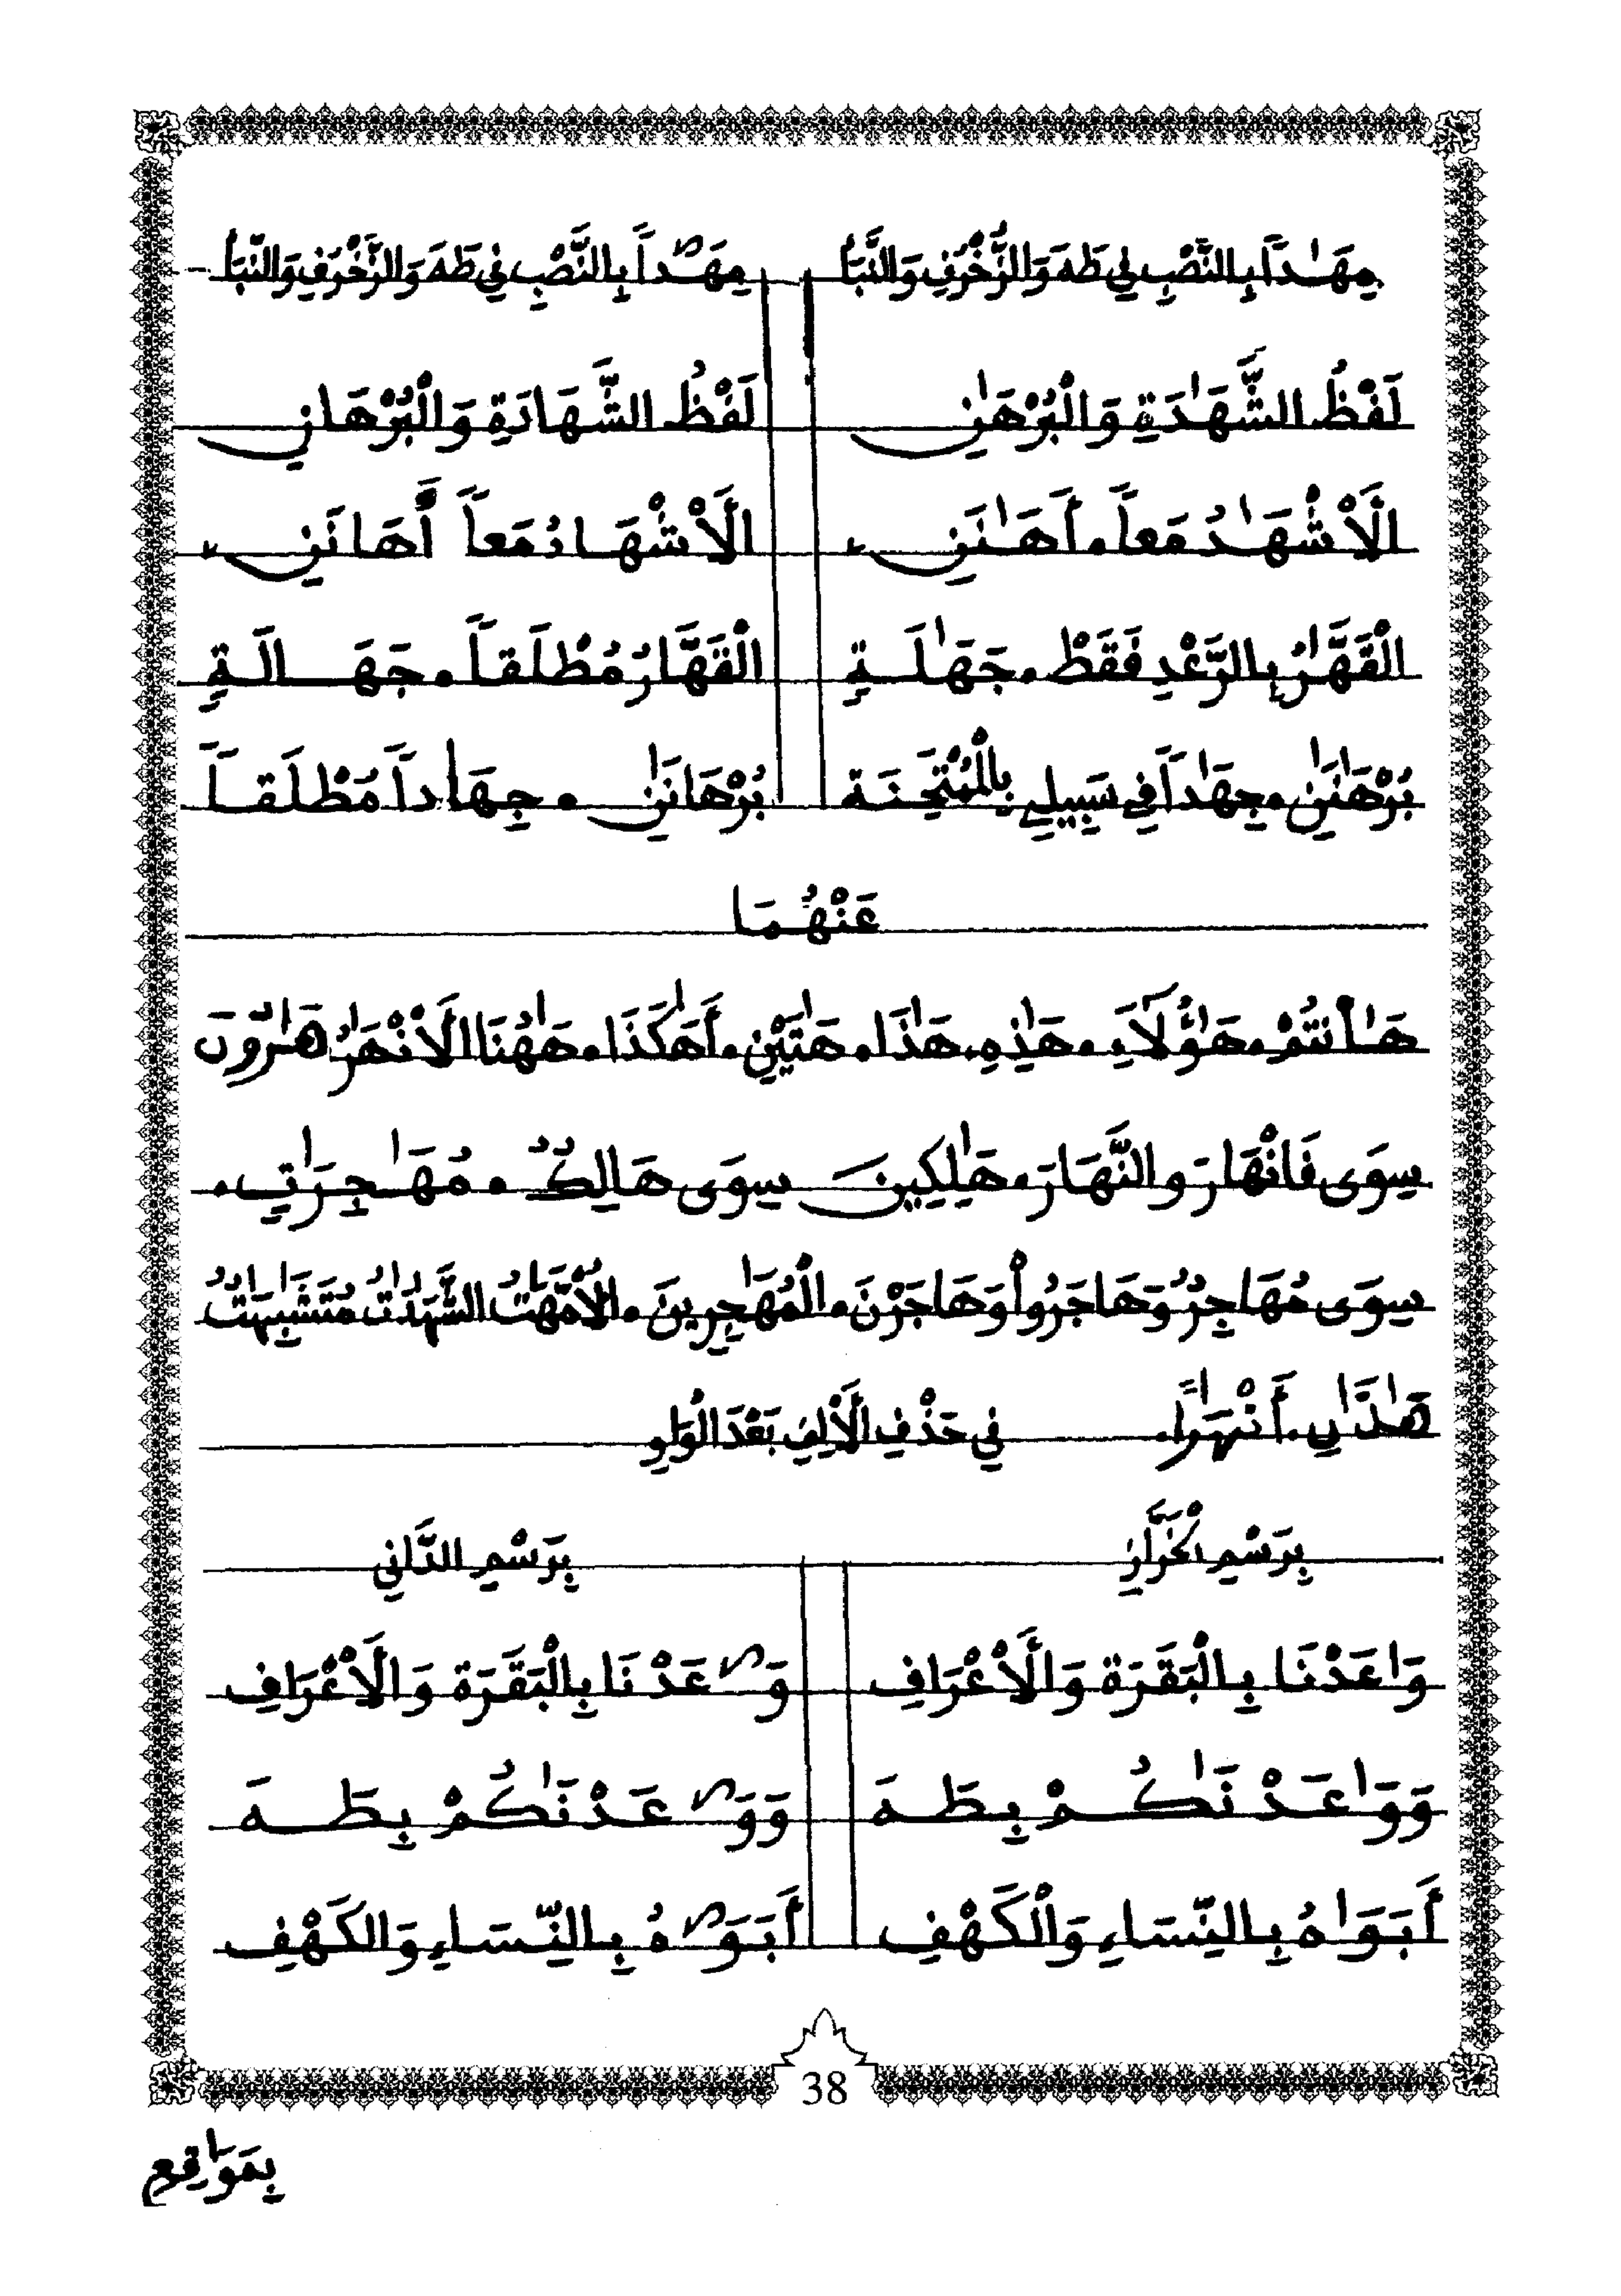 مِهَٰداً بِالنَّصْبِ فِي طَهَ وَالزُّخْرُفِ وَالنَّبَأِ    مِهَٰداً بِالنَّصْبِ فِي طَهَ وَالزُّخْرُفِ وَالنَّبَأِ
لَفْظُ الشَّهَٰدَةِ وَالْبُرْهَٰنِ    لَفْظُ الشَّهَادَةِ وَالْبُرْهَانِ
الَاشْهَٰدُ مَعاً. أَهَٰنَنِ    الَاشْهَادُ مَعاً أَهَانَنِ
الْقَهَّٰرُ بِالرَّعْدِ فَقَطْ. جَهَٰلَةٍ    الْقَهَّارُ مُطْلَقاً. جَهَالَةٍ
بُرْهَٰنَٰنِ. جِهَٰداً فِي سَبِيلِي بِالْمُمْتَحِنَة    بُرْهَانَٰنِ. جِهَاداً مُطْلَقاً
عَنْهُمَا
هَٰأَنتُمْ. هَٰؤُلَآءِ. هَٰذِهِ. هَٰذَا. هَٰتَيْنِ. أَهَٰكَذَا. هَٰهُنَا الَانْهَٰرُ هَٰرُونَ
سِوَى فَانْهَارَ وَالنَّهَارَ. هَٰلِكِينَ سِوَى هَالِكٌ. مُهَٰجِرَٰتٍ.
سِوَى مُهَاجِرٌ وَهَاجَرُواْ وَهَاجَرْنَ. الْمُهَٰجِرِينَ. الُامَّهَٰتُ الشَّهَٰدَٰتُ مُتَشَٰبِهَٰتٌ
هَٰذَٰنِ. أَنْهَٰراً. فِي حَذْفِ الَالِفِ بَعْدَ الْوَاوِ
بِرَسْمِ الْخَرَّازِ    بِرَسْمِ الدَّانِي
وَاعَدْنَا بِالْبَقَرَة وَالَاعْرَافِ    وَٰعَدْنَا بِالْبَقَرَة وَالَاعْرَافِ
وَوَاعَدْنَٰكُمْ بِطَهَ    وَوَٰعَدْنَٰكُمْ بِطَهَ
أَبَوَاهُ بِالنِّسَاءِ وَالْكَهْفِ    أَبَوَٰهُ بِالنِّسَاءِ وَالكَهْفِ
38
بِمَوَٰقِعِ